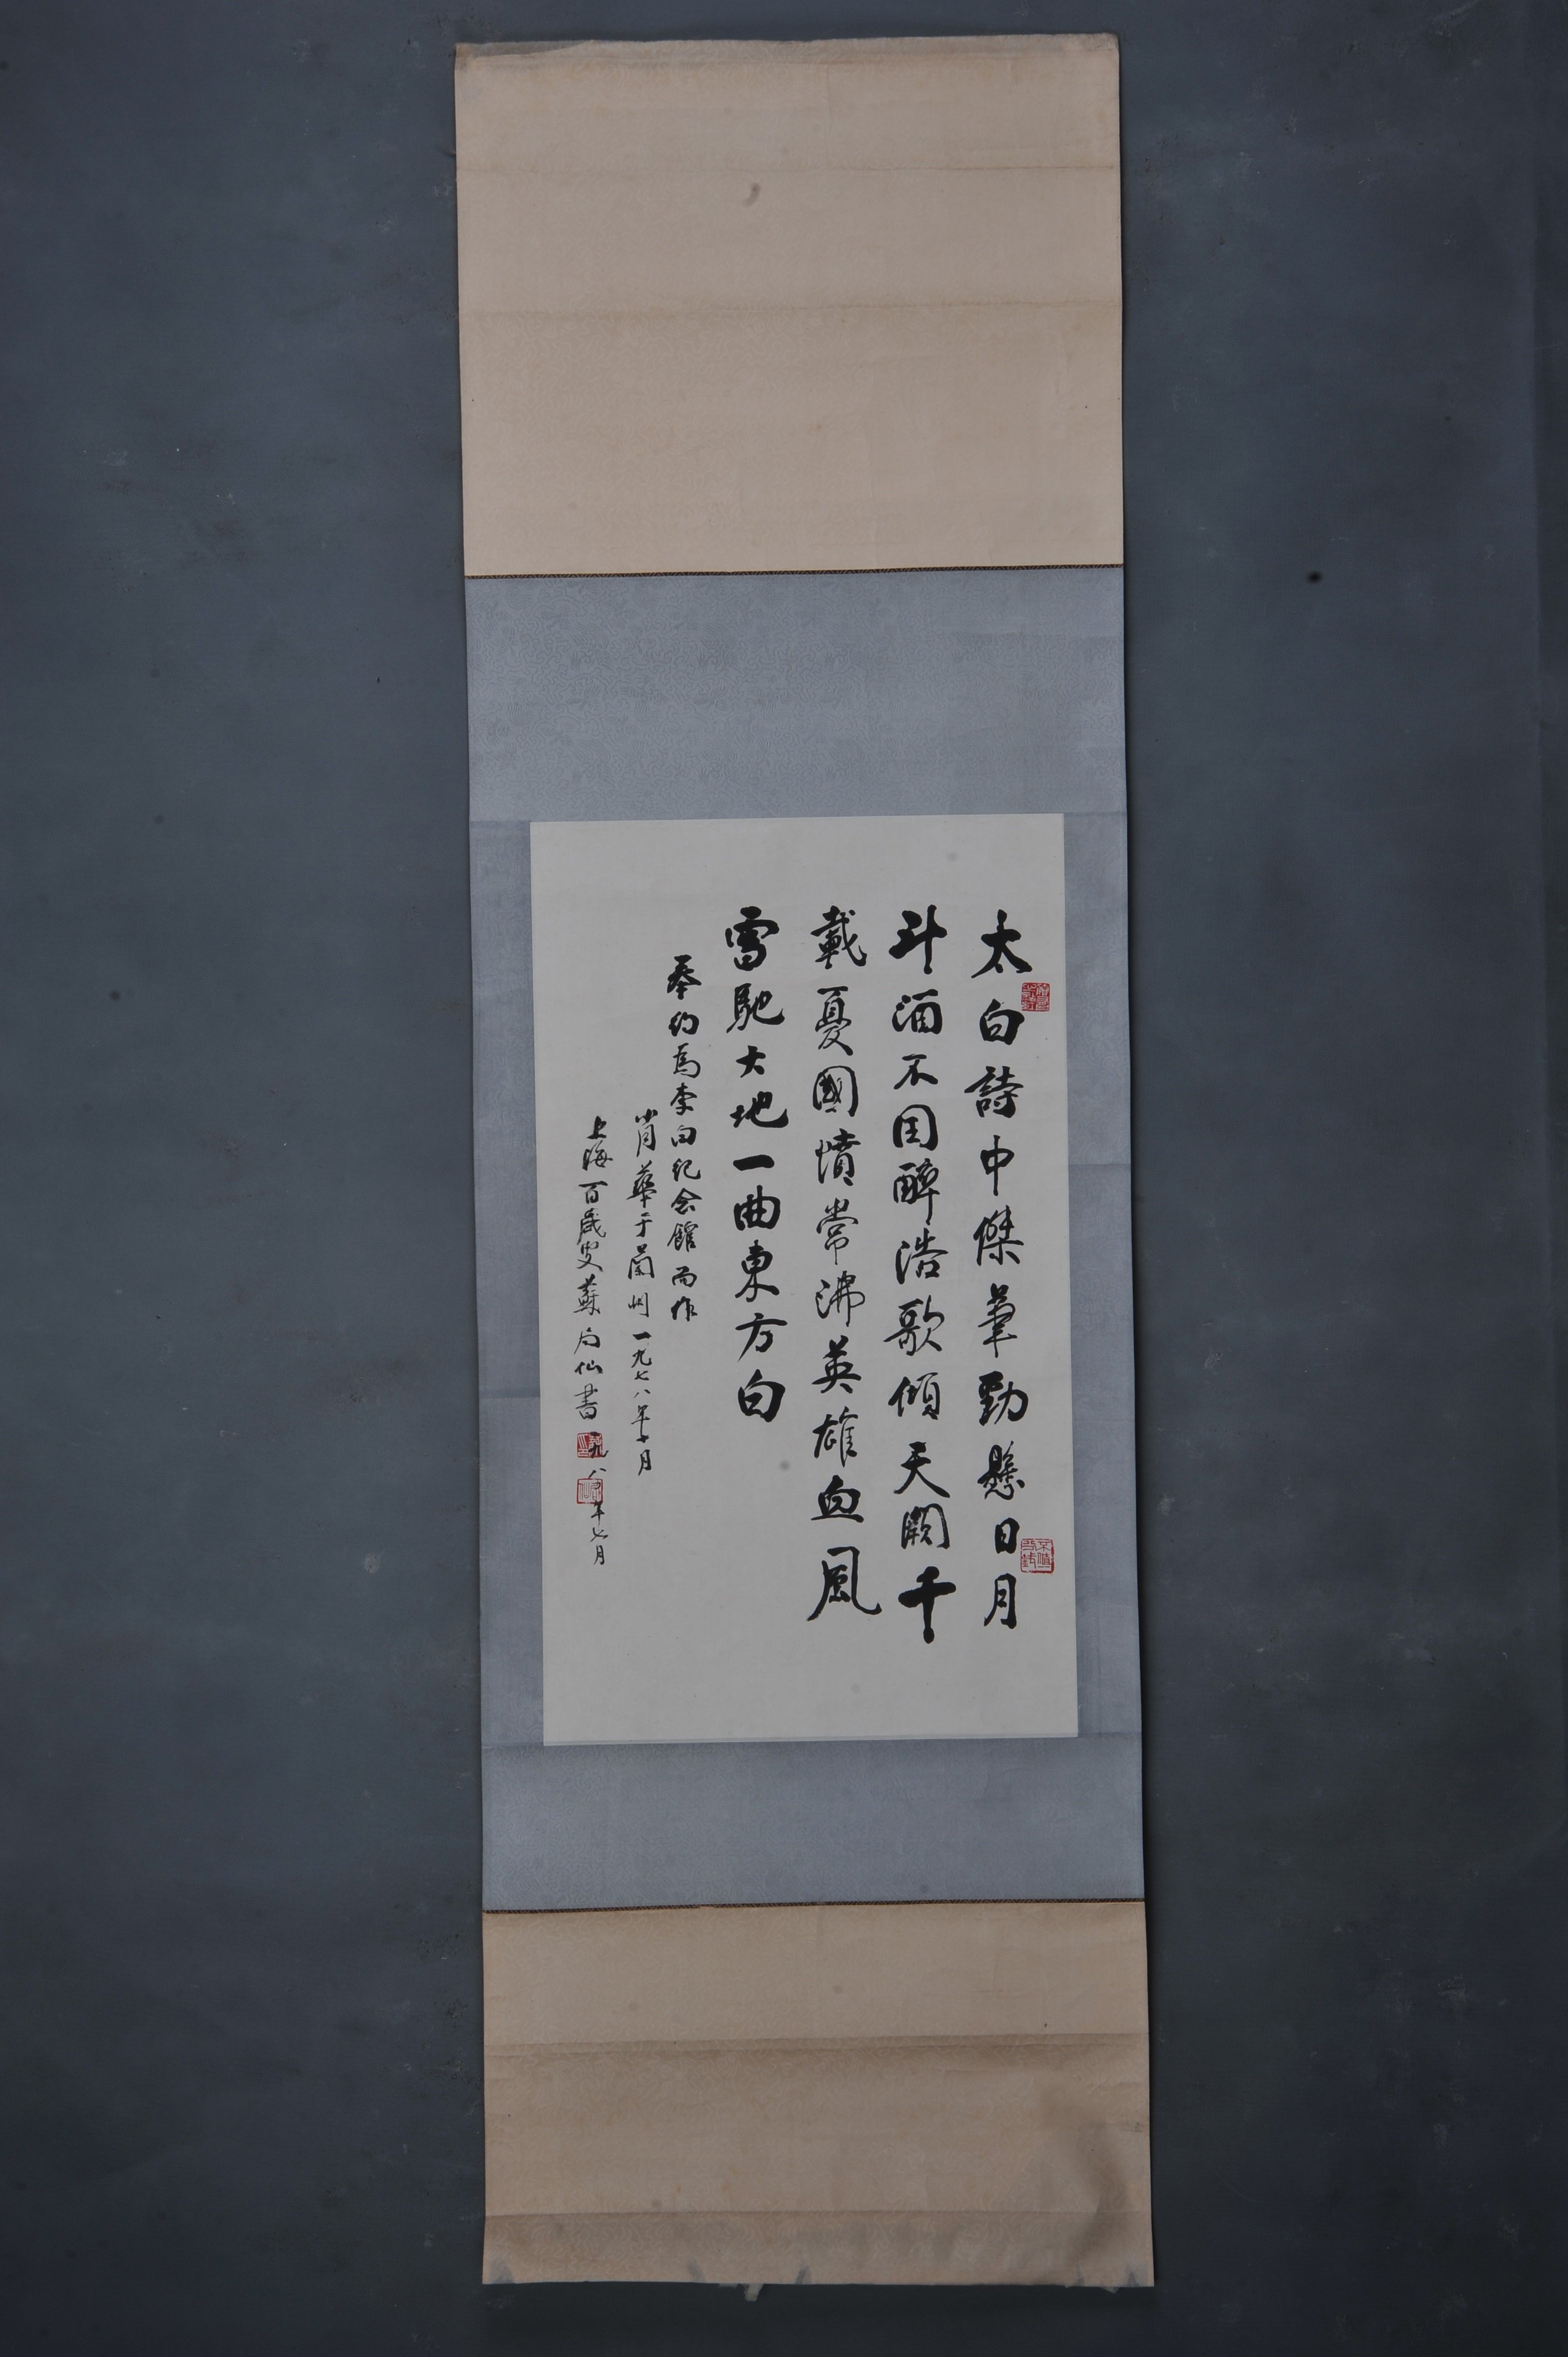 太白詩中傑筆勁懸日月
斗酒不因醉浩歌傾天闕千
載憂國憤常沸英雄血風
雷馳大地一曲東方白
奉約為李白紀念館而作
肖華于蘭州一九七八年十月
上海百歲叟蘇局仙書
一九八 年七月